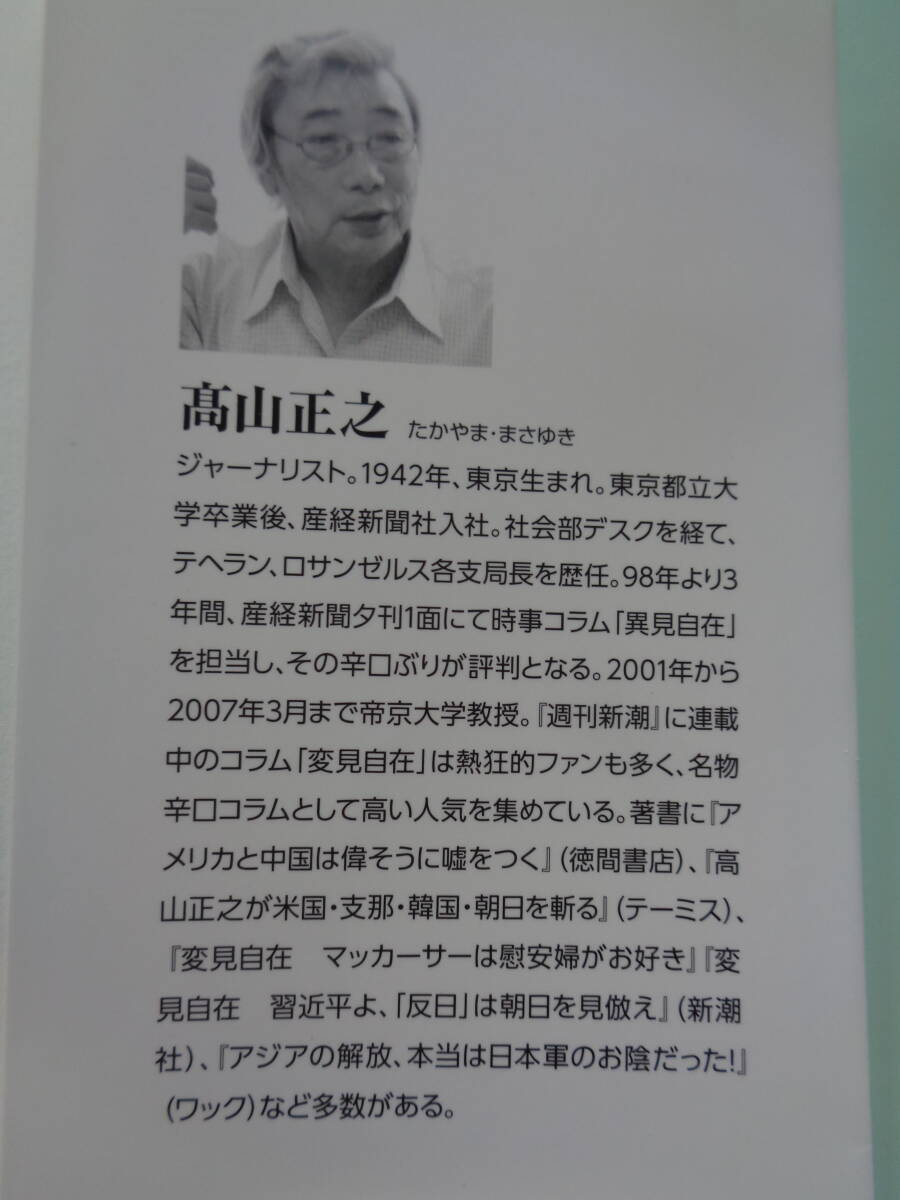 髙山正之 たかやま・まさゆき
ジャーナリスト。1942年、東京生まれ。東京都立大
学卒業後、産経新聞社入社。社会部デスクを経て、
テヘラン、ロサンゼルス各支局長を歴任。98年より3
年間、産経新聞夕刊1面にて時事コラム「異見自在」
を担当し、その辛口ぶりが評判となる。2001年から
2007年3月まで帝京大学教授。『週刊新潮』に連載
中のコラム「変見自在」は熱狂的ファンも多く、名物
辛口コラムとして高い人気を集めている。著書に『ア
メリカと中国は偉そうに嘘をつく』(徳間書店)、『高
山正之が米国・支那・韓国・朝日を斬る』(テーミス)、
『変見自在　マッカーサーは慰安婦がお好き』『変
見自在　習近平よ、「反日」は朝日を見倣え』(新潮
社)、『アジアの解放、本当は日本軍のお陰だった!』
(ワック)など多数がある。